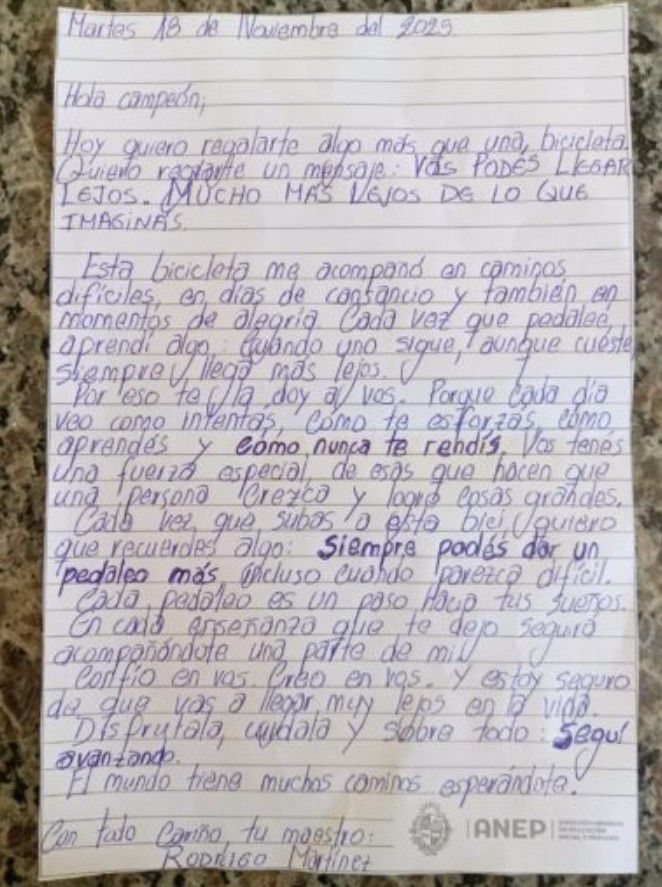 Martes 18 de Noviembre del 2025
Hola campeón,
Hoy quiero regalarte algo más que una bicicleta.
Quiero regalarte un mensaje: VOS PODÉS LLEGAR
LEJOS. MUCHO MÁS LEJOS DE LO QUE
IMAGINÁS.
Esta bicicleta me acompañó en caminos
difíciles, en días de cansancio y también en
momentos de alegría. Cada vez que pedaleé,
aprendí algo: cuando uno sigue, aunque cueste,
siempre llega más lejos.
Por eso te la doy a vos. Porque cada día
veo como intentás, cómo te esforzás, cómo
aprendés y cómo nunca te rendís. Vos tenés
una fuerza especial, de esas que hacen que
una persona crezca y logre cosas grandes.
Cada vez que subas a esta bici, quiero
que recuerdes algo: Siempre podés dar un
pedaleo más, incluso cuando parezca difícil.
Cada pedaleo es un paso hacia tus sueños.
En cada enseñanza que te dejo seguirá
acompañándote una parte de mi.
Confío en vos. Creo en vos. Y estoy seguro
de que vas a llegar muy lejos en la vida.
Disfrutala, cuidala y sobre todo: Seguí
avanzando.
El mundo tiene muchos caminos esperándote.
Con todo cariño, tu maestro:
RODRIGO Martínez
ANEP